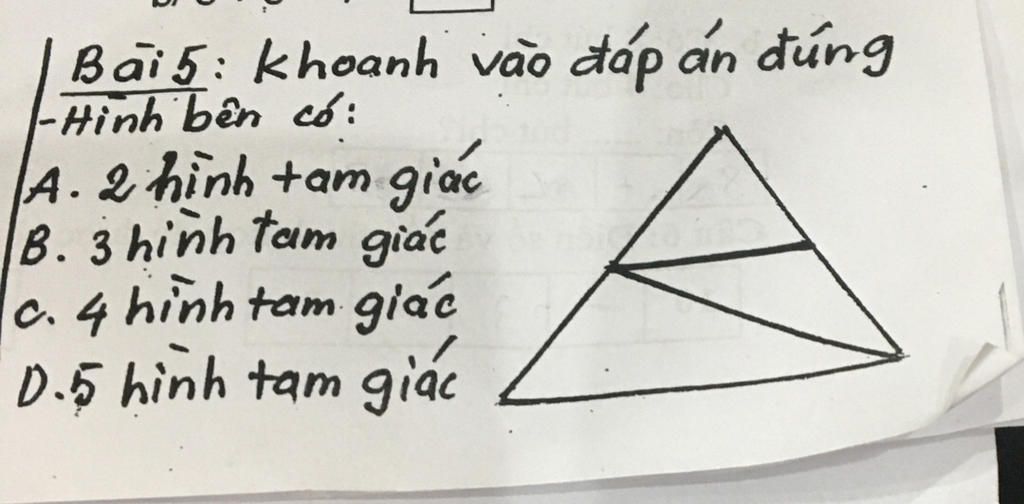 Bài 5: khoanh vào đáp án đúng
-Hình bên có:
A. 2 hình tam giác
B. 3 hình tam giác
C. 4 hình tam giác
D. 5 hình tam giác